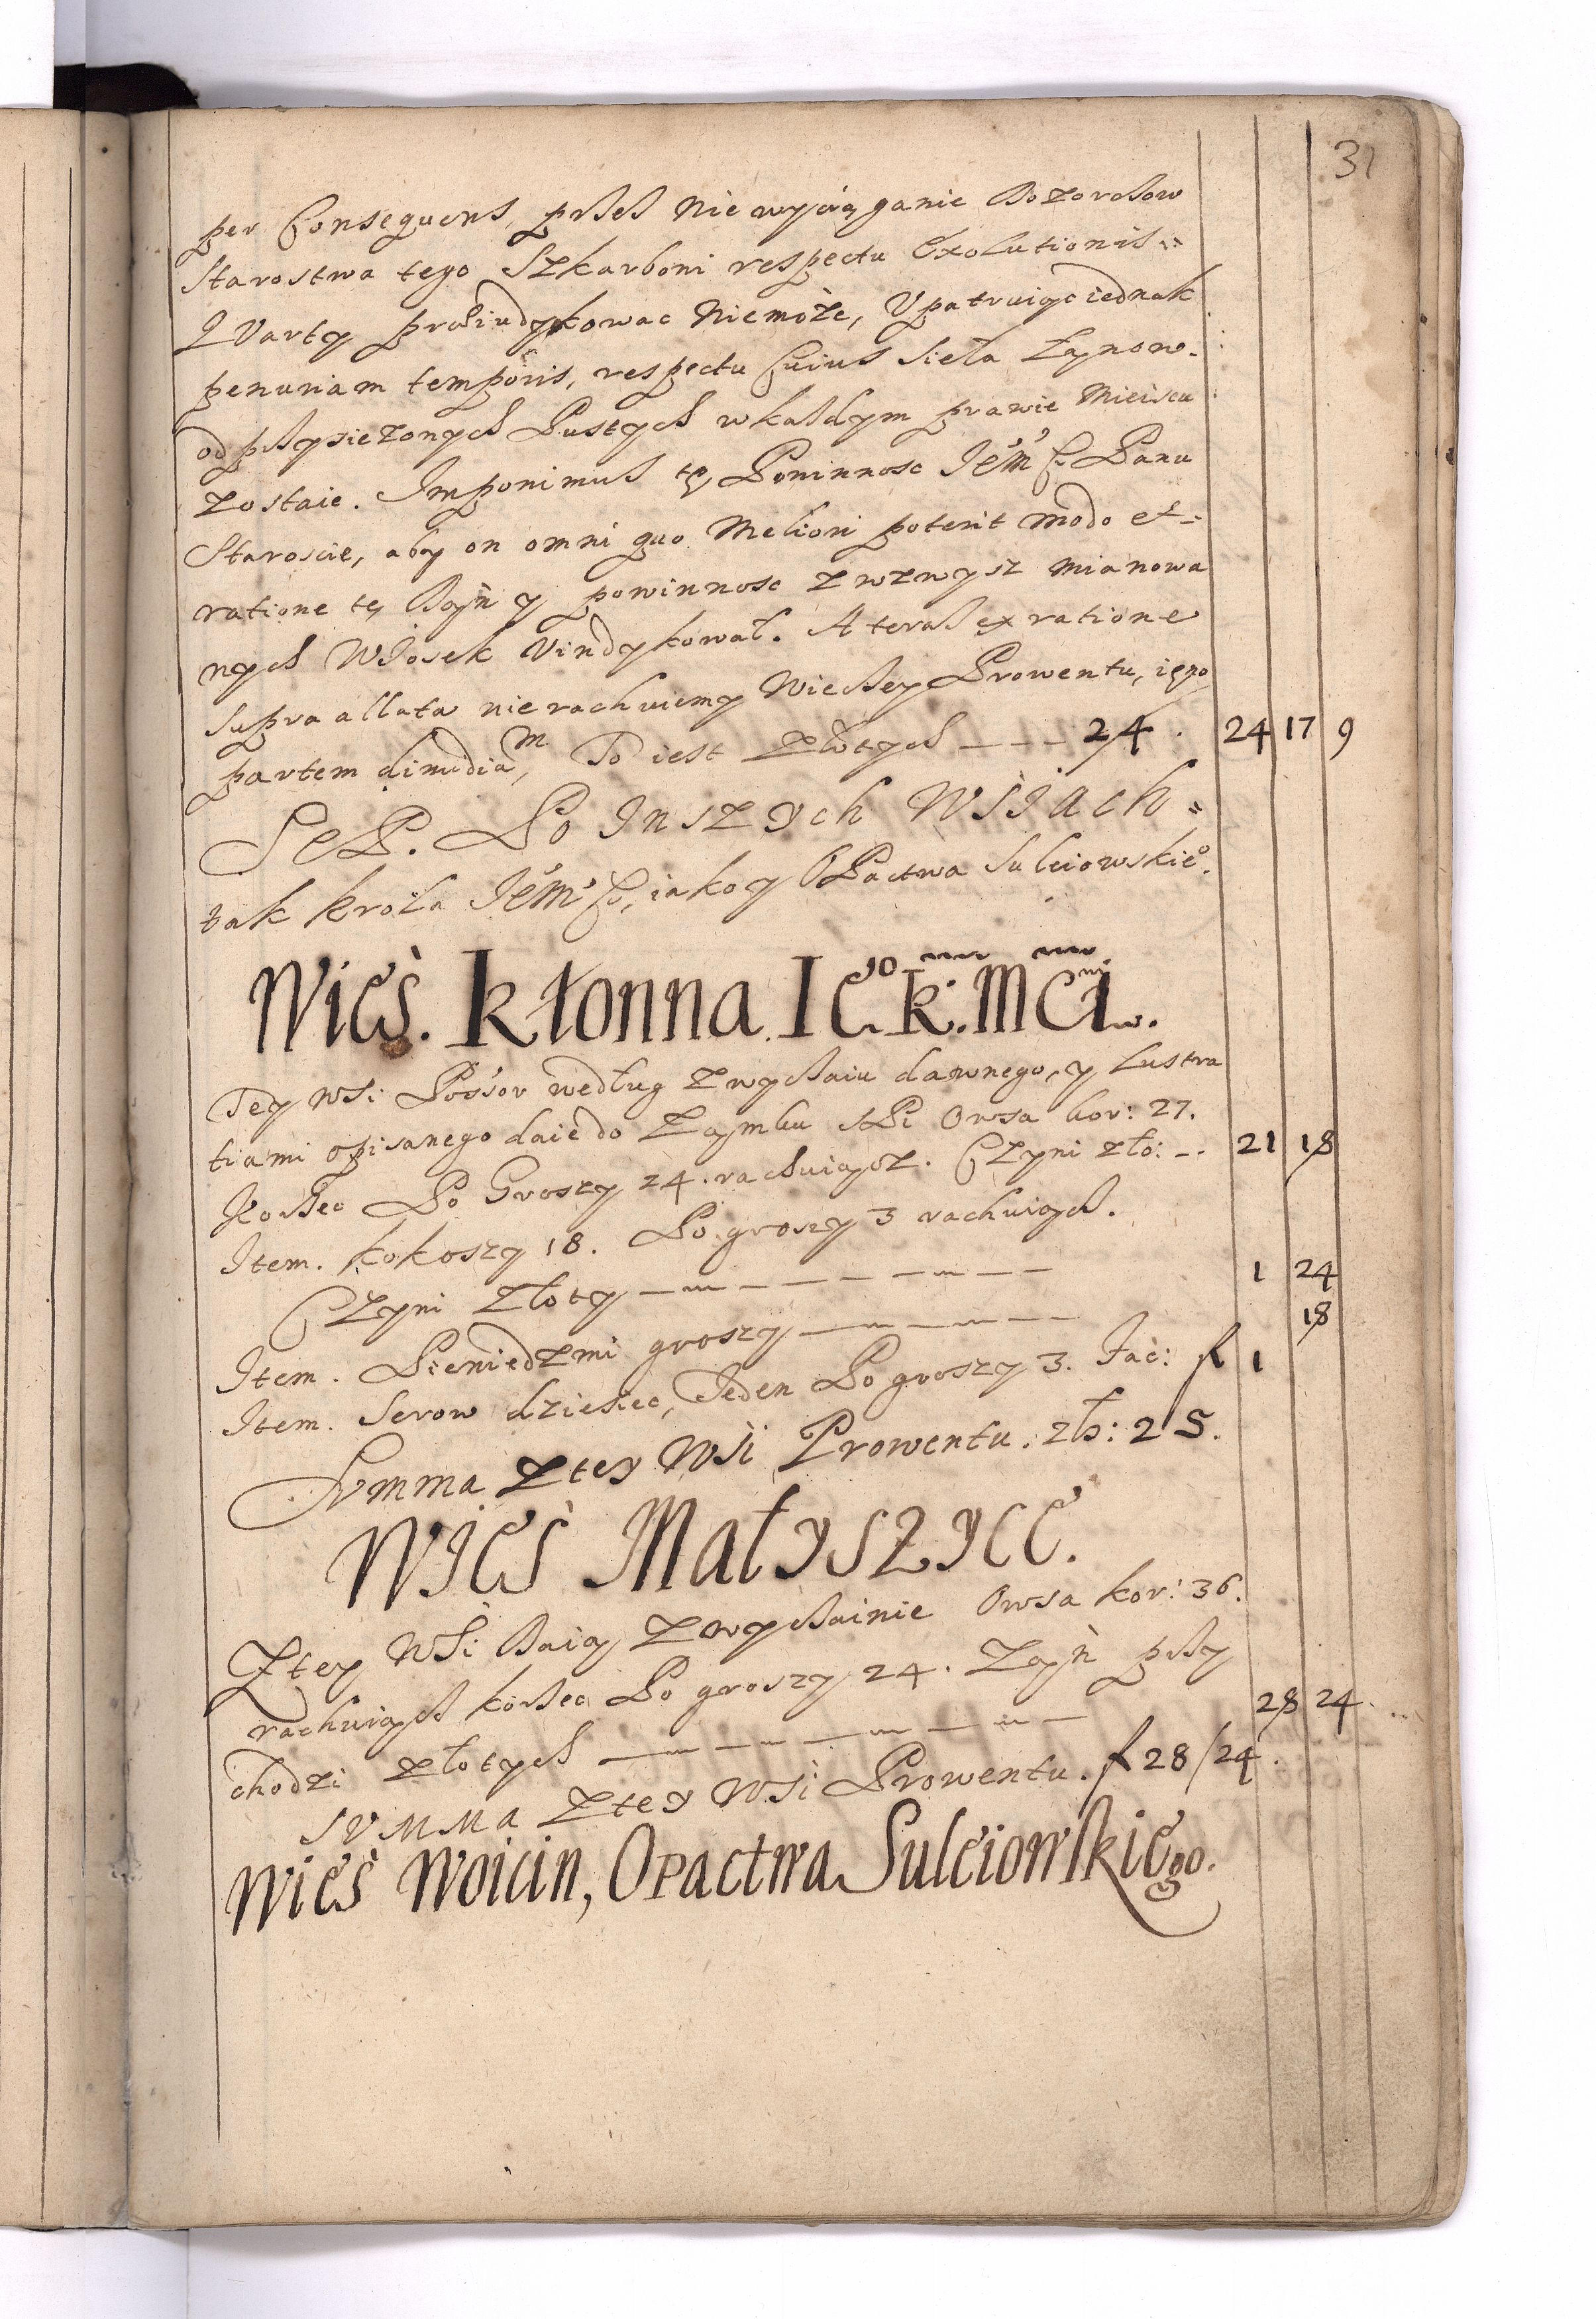 31
per Consequens, przez nie wyciąganie Dozorcsow
Starostwa tego Szkarboni respectu Exolutionis
Quarty praeiudykowac Niemoże, Upatruiąc iednak
penuriam temporis, respectu Cuius sieła Łanow
od przysiezonych Pustych w kazdym prawie Mieiscu
zostaie. Imponimus tę Powinnosc Iem C Panu
Staroscie, aby on omni quo Meliori poterit modo et
ratione tę Daņ y powinnosc zwzwysz mianowa
nych Włosek Vindykował. A teraz ex ratione
supra allata nie rachuiemy Wiekszey Prowentu, ieno
partem dimidiam, To iest Złotych --- 24. 24 17 9
SeP. Po Inszych WSiach
tak Krola Iem C, iako y OPactwa Sulciowskieo.
Wieś. Kłonna Ieo K: MCi.
Tey WSi Possor według zwyczaiu dawnego, y Lustra
tiami opisanego daie do Zamku sPi Owsa kor: 27.
Korzec Po Groszy 24. rachuiącz. Czyni zło: -. 21 18
Item. kokoszy 18. Po groszy 3 rachuiącz.
Czyni Złoty 1 24
Item. Pieniedzmi groszy 18
Item. Serow dziesiec, Jeden Po groszy 3. fac: f 1
Summa Ztey WSi Prowentu. zło: 25.
WIeś Małyszyce.
Ztey WSi Daią Zwyczainie Owsa kor: 36.
rachuiącz korzec Po groszy 24. Zań przy
chodzi złotych 28 24
SVMMA Ztey WSi Prowentu. f 28/24.
Wieś Woicin, OPactwa Sulciowskiego.